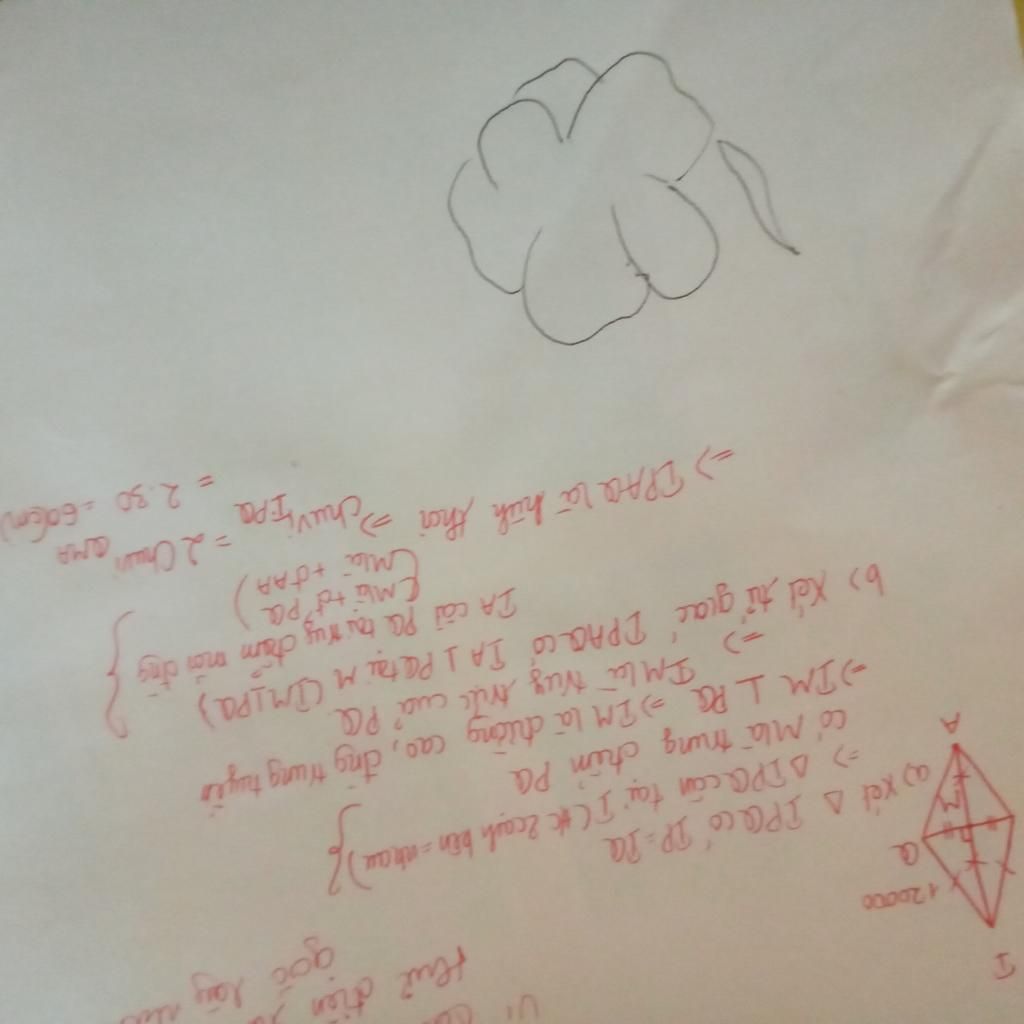 Vì
thuế điện
góc
I
120000
Q
M
A
a) Xét Δ IPQ có IP = IQ
=> Δ IPQ cân tại I (tc 2 cạnh bên = nhau)
có M là trung điểm PQ
=> IM là đường cao, đg trung tuyến
=> IM ⊥ PQ
IM là trung trực của PQ
=>
b) Xét tứ giác IPAQ có IA ⊥ PQ tại M (IM ⊥ PQ)
IA cắt PQ tại trung điểm mỗi đg
(M là tđ PQ)
(M là tđ AA)
=> IPAQ là hình thoi => Chu vi IPQ = 2 Chu vi QMA
= 2.30 = 60(cm)